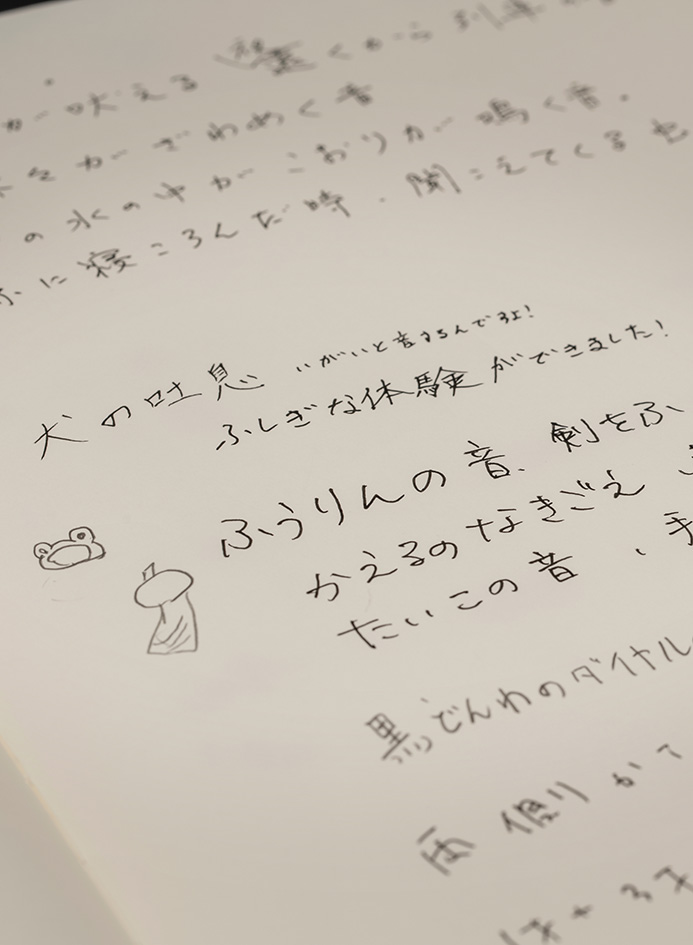 が吠える 遠くから列車
木々がざわめく音
の氷の中がこおりが鳴く音.
ふに寝ころんだ時.聞こえてくる
犬の吐息
いがいと音するんですよ!
ふしぎな体験ができました!
ふうりんの音、剣をふ
かえるのなきごえ
たいこの音、手
黒でんわのダイヤル
雨